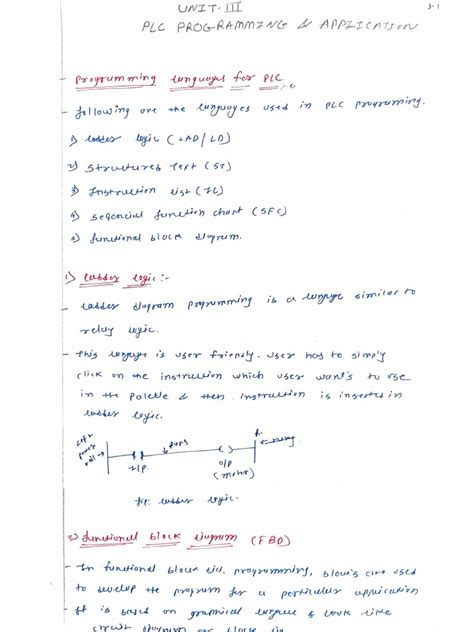 UNIT-III
3-1
PLC PROGRAMMING & APPLICATION
- Programming languages for PLC
- following are the languages used in PLC programming.
1) ladder logic (LAD/LD)
2) Structured Text (ST)
3) Instruction list (IL)
4) Seqencial function chart (SFC)
5) functional block diagram.
1) Ladder logic:-
- Ladder diagram programming is a languge similar to
relay logic.
- This languge is user friendly. user has to simply
click on the instruction which user want's to use
in the palette & then instruction is inserted in
ladder logic.
left
power
rail
I/P
O/P
(motor)
R.
fig. ladder logic.
2) functional block diagram (FBD)
- In functional block dia. programming, blocks are used
to develop the program for a particular application
- It is based on graphical languge & look like
circuit diagram or block dia.